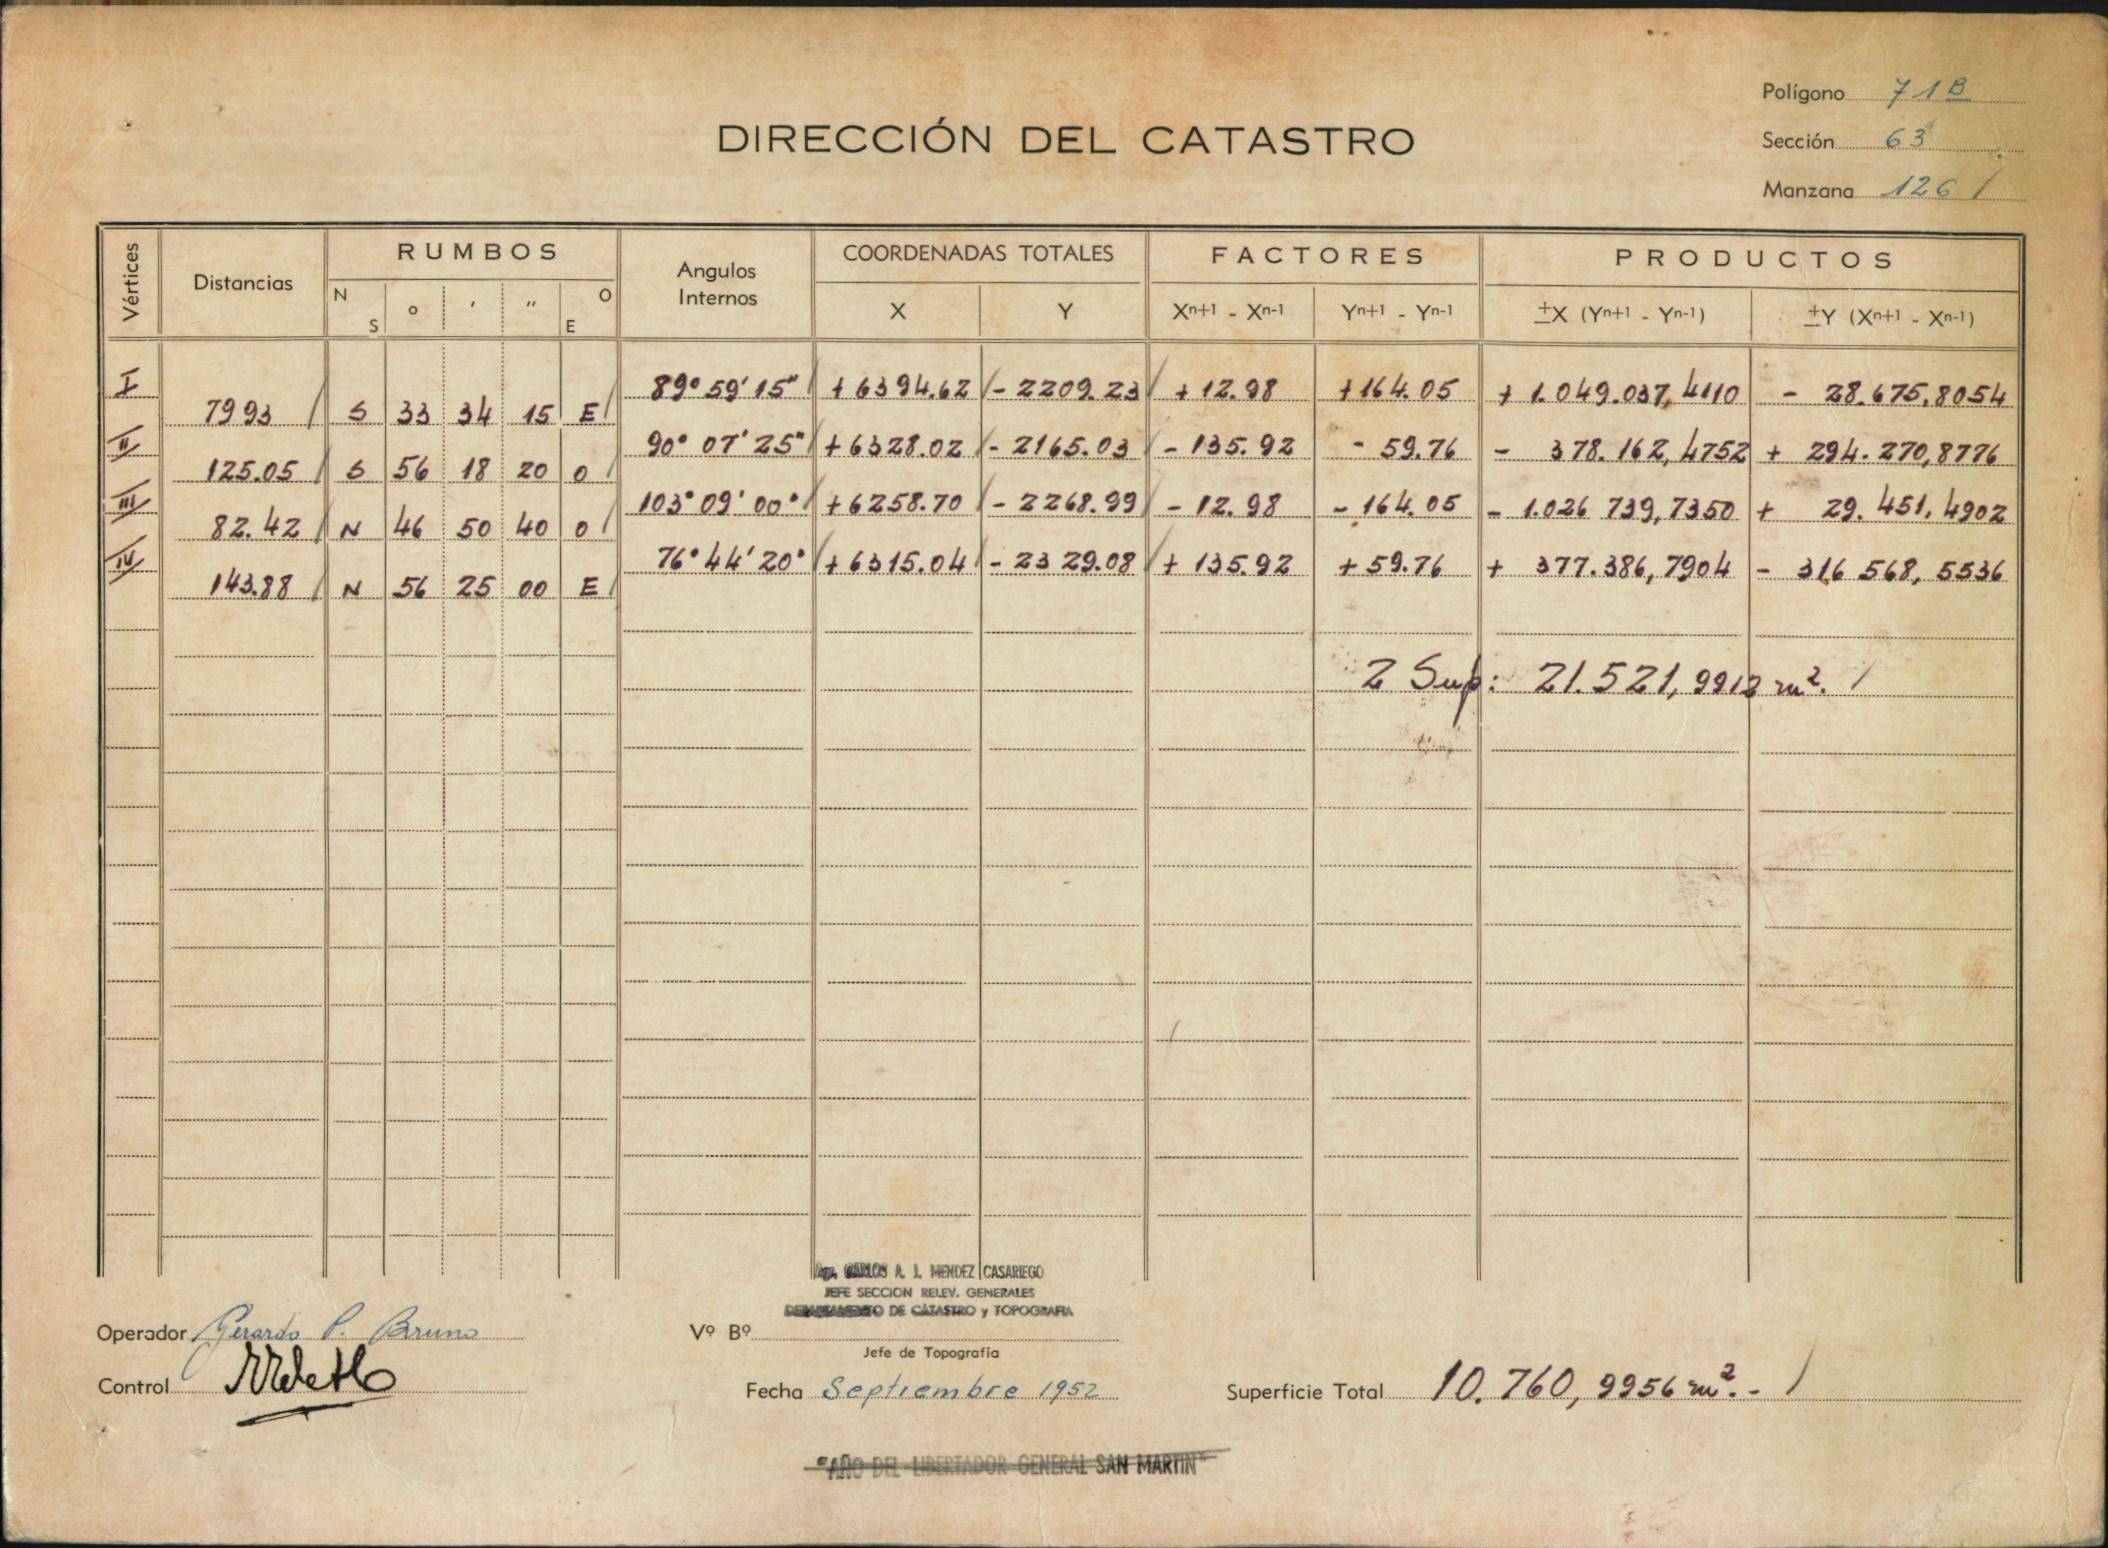 Polígono 71B
DIRECCIÓN DEL CATASTRO
Sección 63
Manzana 126 /
Vértices Distancias RUMBOS Angulos Internos COORDENADAS TOTALES FACTORES PRODUCTOS
N S ° ' " O E X Y Xn+1 - Xn-1 Yn+1 - Yn-1 ±X (Yn+1 - Yn-1) ±Y (Xn+1 - Xn-1)
I 89° 59' 15" / + 6394.62 / - 2209.23 / + 12.98 + 164.05 + 1.049.037,4110 - 28.675.8054
79 93 / S 33 34 15 E /
II 90° 07' 25" / + 6328.02 / - 2165.03 / - 135.92 - 59.76 - 378.162,4752 + 294.270,8776
125.05 / S 56 18 20 O /
III 103° 09' 00" / + 6258.70 / - 2268.99 / - 12.98 - 164.05 - 1.026 739,7350 + 29.451,4902
82.42 / N 46 50 40 O /
IV 76° 44' 20" / + 6315.04 / - 2329.08 / + 135.92 + 59.76 + 377.386,7904 - 316 568,5536
143.88 / N 56 25 00 E /
2 Sup: 21.521,9912 m². /
CARLOS A. J. MENDEZ CASARIEGO
JEFE SECCION RELEV. GENERALES
DEPARTAMENTO DE CATASTRO y TOPOGRAFIA
Operador Gerardo P. Bruno Vº Bº
Jefe de Topografía
Control Fecha Septiembre 1952 Superficie Total 10.760,9956 m².- /
"AÑO DEL LIBERTADOR GENERAL SAN MARTIN"